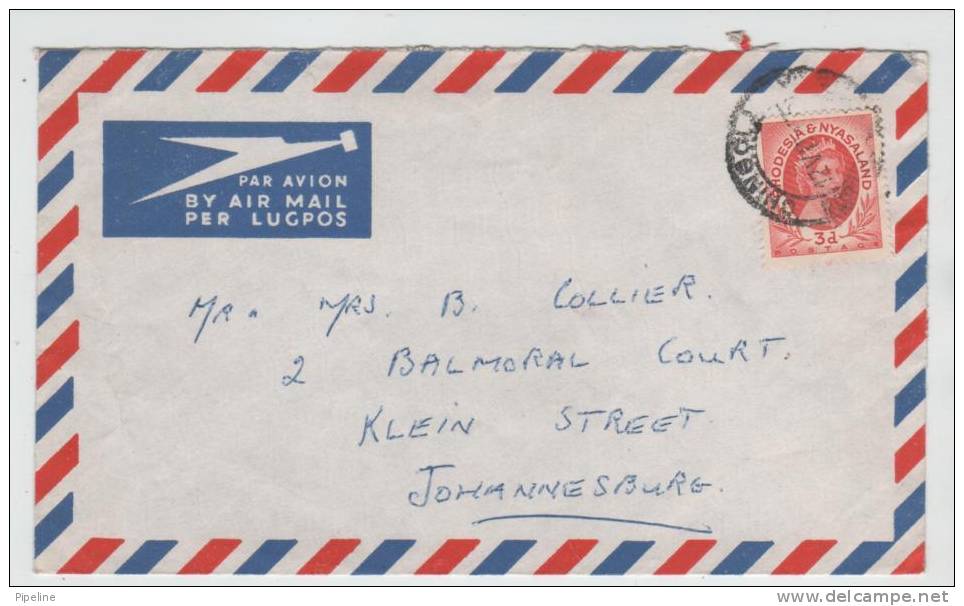 PAR AVION
BY AIR MAIL
PER LUGPOS
RHODESIA & NYASALAND
3d
POSTAGE
MR. MRS. B. COLLIER.
2 BALMORAL COURT.
KLEIN STREET
JOHANNESBURG.
Pipeline
www.delcampe.net